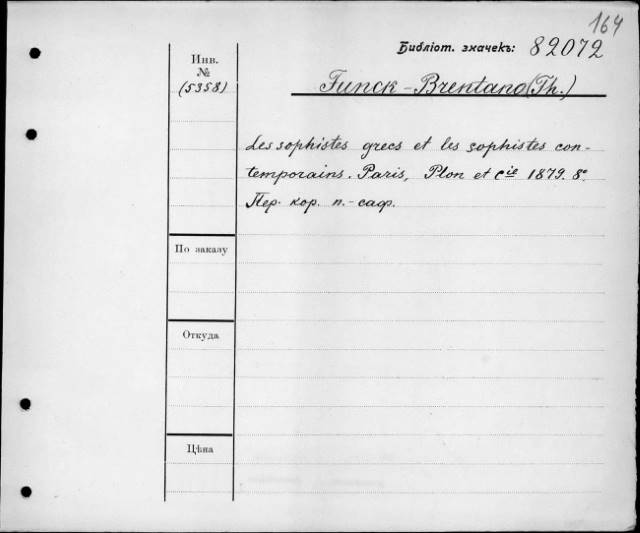 164
Библіот. значекъ: 82072
Инв.
№
(5358)
Funck-Brentano (Th.)
Les sophistes grecs et les sophistes con-
temporains. Paris, Plon et Cie 1879. 8°.
Пер. кор. п.-саф.
По заказу
Откуда
Цѣна